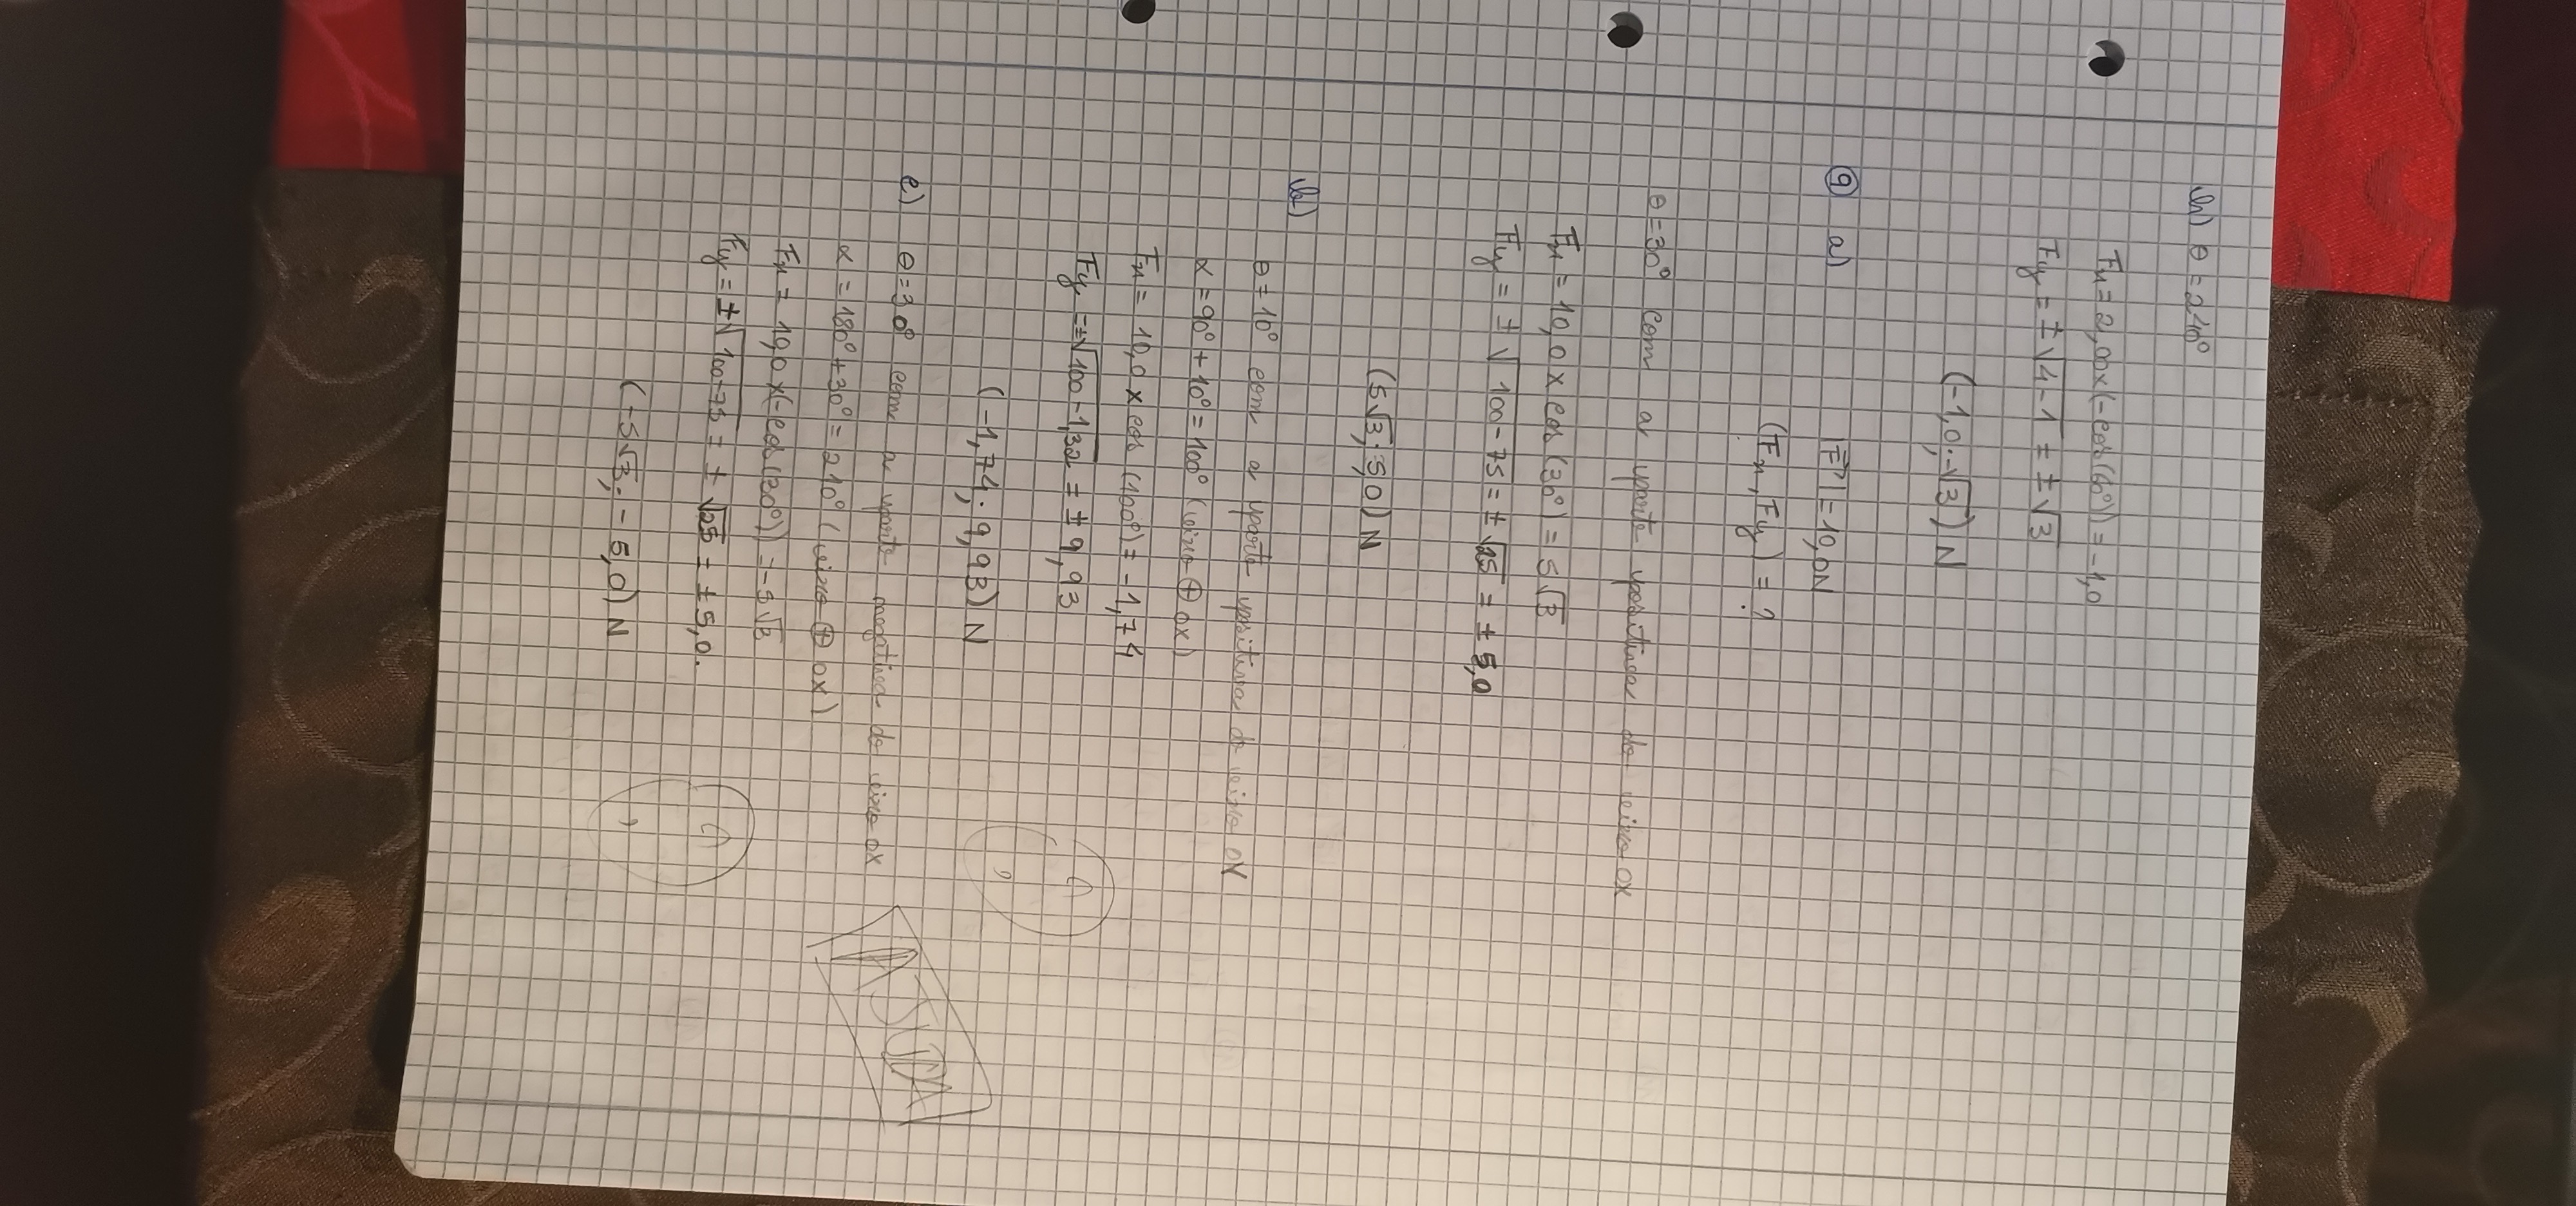 h) θ = 240°
Fx = 2,00 x (-cos(60°)) = -1,0
Fy = ± √4-1 = ± √3
(-1,0; -√3) N
9 a) |F⃗| = 10,0N
(Fx, Fy) = ?
θ = 30° com a parte positiva do eixo ox
Fx = 10,0 x cos(30°) = 5√3
Fy = ± √100-75 = ± √25 = ± 5,0
(5√3; 5,0) N
b)
θ = 10° com a parte positiva do eixo oy
α = 90° + 10° = 100° (eixo ⊕ ox)
Fx = 10,0 x cos (100°) = -1,74
Fy = ±√100-1,32 = ± 9,93
(-1,74; 9,93) N
c) θ = 30° com a parte negativa do eixo ox
α = 180° + 30° = 210° (eixo ⊕ ox)
Fx = 10,0 x (-cos(30°)) = -5√3
Fy = ±√100-75 = ± √25 = ± 5,0.
(-5√3; -5,0) N